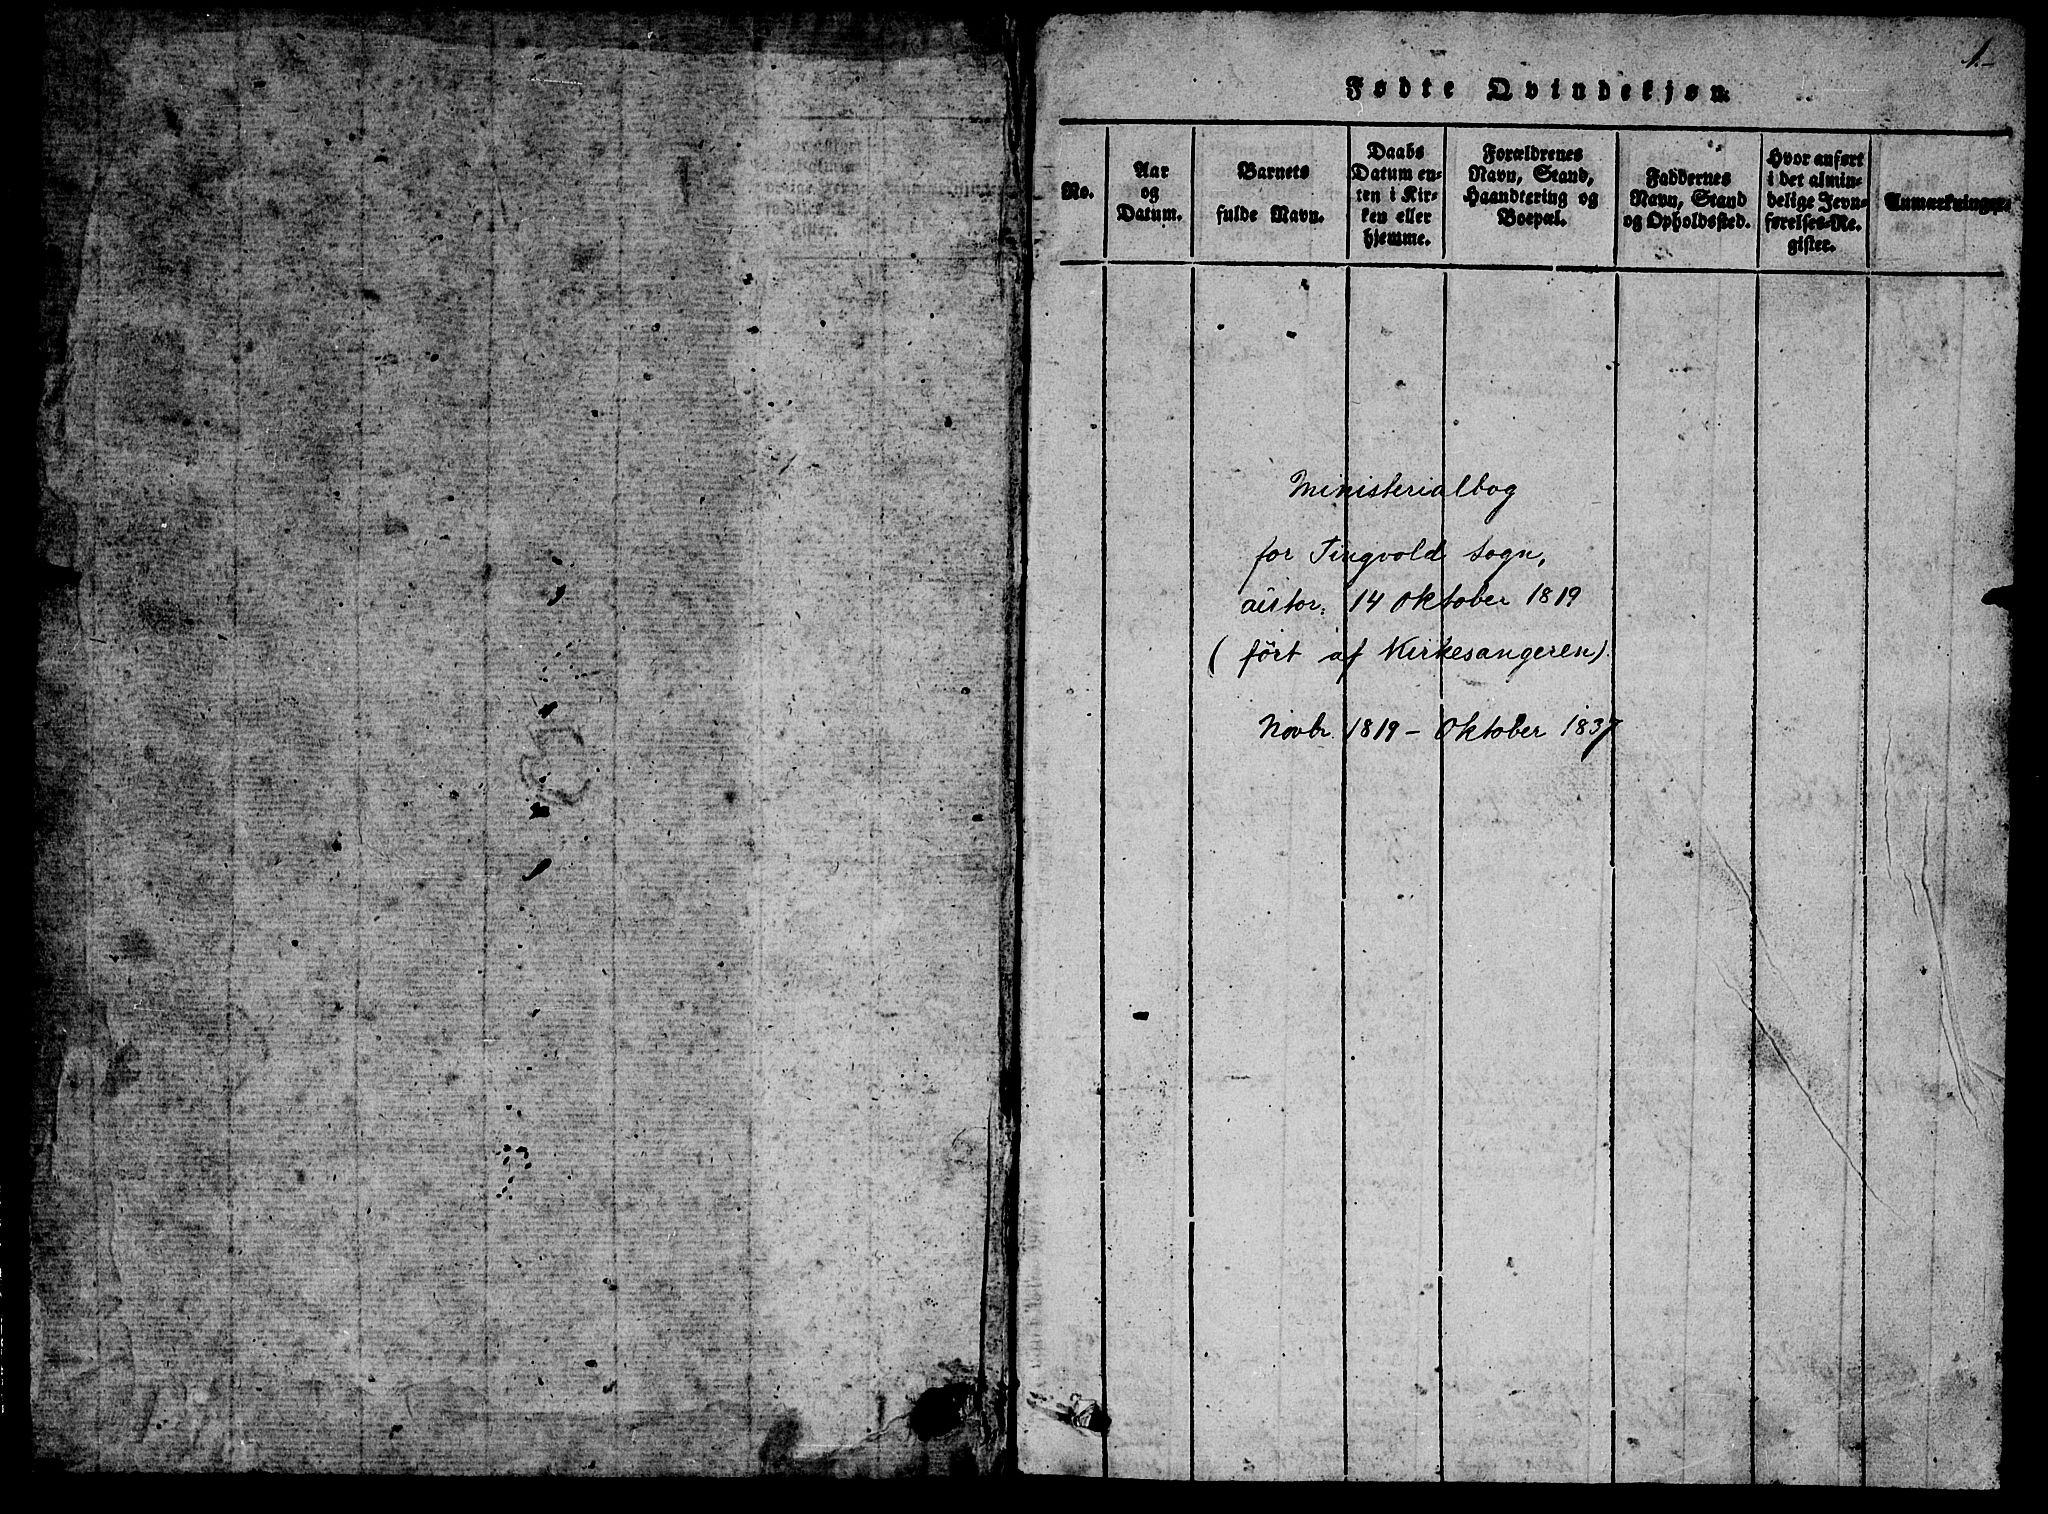 1.-
Fødte Qvindekjøn.
No.
Aar
og
Datum.
Barnets
fulde Navn.
Daabs
Datum en-
ten i Kir-
ken eller
hjemme.
Forældrenes
Navn, Stand,
Haandtering og
Boepæl.
Faddernes
Navn, Stand
og Opholdssted.
Hvor anført
i det almin-
delige Jevn-
førelses-Re-
gister.
Anmærkninger.
Ministerialbog
for Tingvold Sogn,
autor: 14 Oktober 1819
(ført af Kirkesangeren).
Novbr 1819 - Oktober 1837